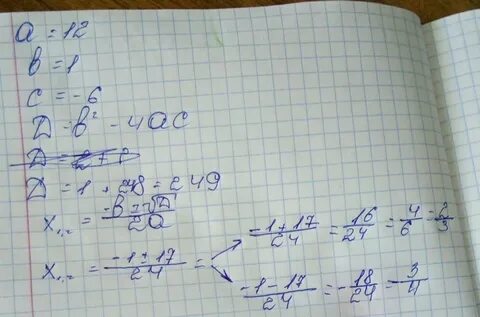 a = 12
b = 1
c = -6
D = b² - 4ac
D = 1 + 248 = 249
x₁,₂ = (-b ± √D)/2a
x₁,₂ = (-1 ± 17)/24 =
(-1 + 17)/24 = 16/24 = 4/6 = 2/3
(-1 - 17)/24 = -18/24 = -3/4